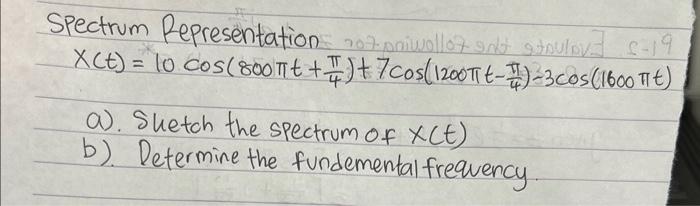 Spectrum Representation
X(t) = 10 cos(800πt + π/4) + 7cos(1200πt - π/4) - 3cos(1600πt)
a). Sketch the spectrum of X(t)
b). Determine the fundemental frequency.